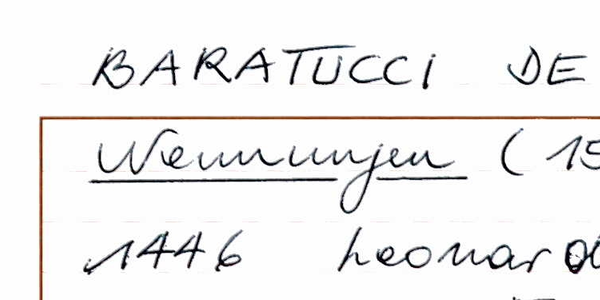 BARATUCCI DE
Wennungen (15
1446 Leonard